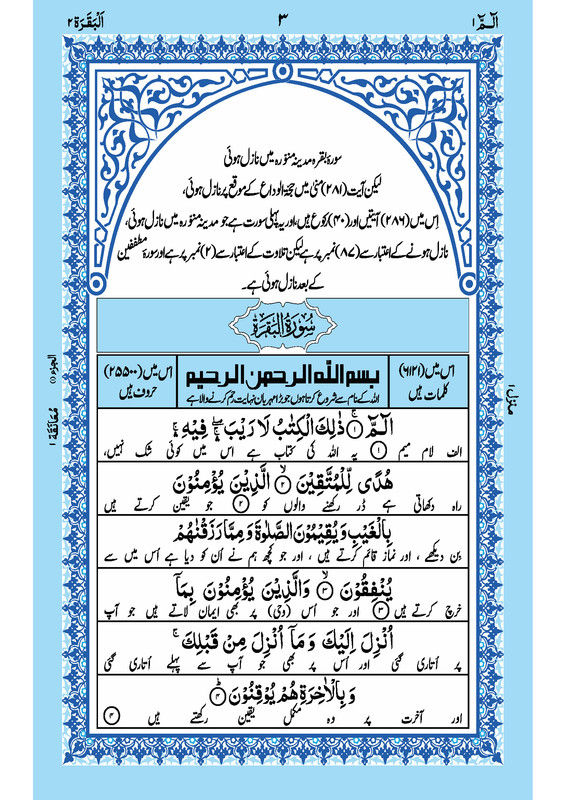 الٓـمّٓ ١
٣
اَلْبَقَرَة ٢
سورۂ بقرہ مدینہ منورہ میں نازل ہوئی
لیکن آیت (۲۸۱) منٰی میں حجۃ الوداع کے موقع پر نازل ہوئی،
اِس میں (۲۸۶) آیتیں اور (۴۰) رکوع ہیں، اور یہ پہلی سورت ہے جو مدینہ منورہ میں نازل ہوئی،
نازل ہونے کے اعتبار سے (۸۷) نمبر پر ہے لیکن تلاوت کے اعتبار سے (۲) نمبر پر ہے اور سورۂ مطففین
کے بعد نازل ہوئی ہے۔
سُوْرَةُ الْبَقَرَةِ
اس میں (۶۱۲۱)
کلمات ہیں
بسم الله الرحمن الرحيم
اللہ کے نام سے شروع کرتا ہوں جو بڑا مہربان نہایت رحم کرنے والا ہے
اس میں (۲۵۵۰۰)
حروف ہیں
الٓـمّٓ ۚ ١ ذٰلِكَ الْكِتٰبُ لَا رَيْبَ ۛۖ فِيْهِ ۛۚ
الف لام میم ۱ یہ اللہ کی کتاب ہے اس میں کوئی شک نہیں،
هُدًى لِّلْمُتَّقِيْنَ ۙ ٢ الَّذِيْنَ يُؤْمِنُوْنَ
راہ دکھاتی ہے ڈر رکھنے والوں کو ۲ جو یقین کرتے ہیں
بِالْغَيْبِ وَيُقِيْمُوْنَ الصَّلٰوةَ وَمِمَّا رَزَقْنٰهُمْ
بِن دیکھے، اور نماز قائم کرتے ہیں، اور جو کچھ ہم نے اُن کو دیا ہے اُس میں سے
يُنْفِقُوْنَ ۙ ٣ وَالَّذِيْنَ يُؤْمِنُوْنَ بِمَاۤ
خرچ کرتے ہیں ۳ اور جو اُس (وحی) پر بھی ایمان لاتے ہیں جو آپ
اُنْزِلَ اِلَيْكَ وَمَاۤ اُنْزِلَ مِنْ قَبْلِكَ ۚ
پر اُتاری گئی اور اُس پر بھی جو آپ سے پہلے اُتاری گئی
وَبِالْاٰخِرَةِ هُمْ يُوْقِنُوْنَ ؕ ٤
اور آخرت پر وہ مکمل یقین رکھتے ہیں ۴
منزل ١
الجزء (١)
مُعَانَقَة ١